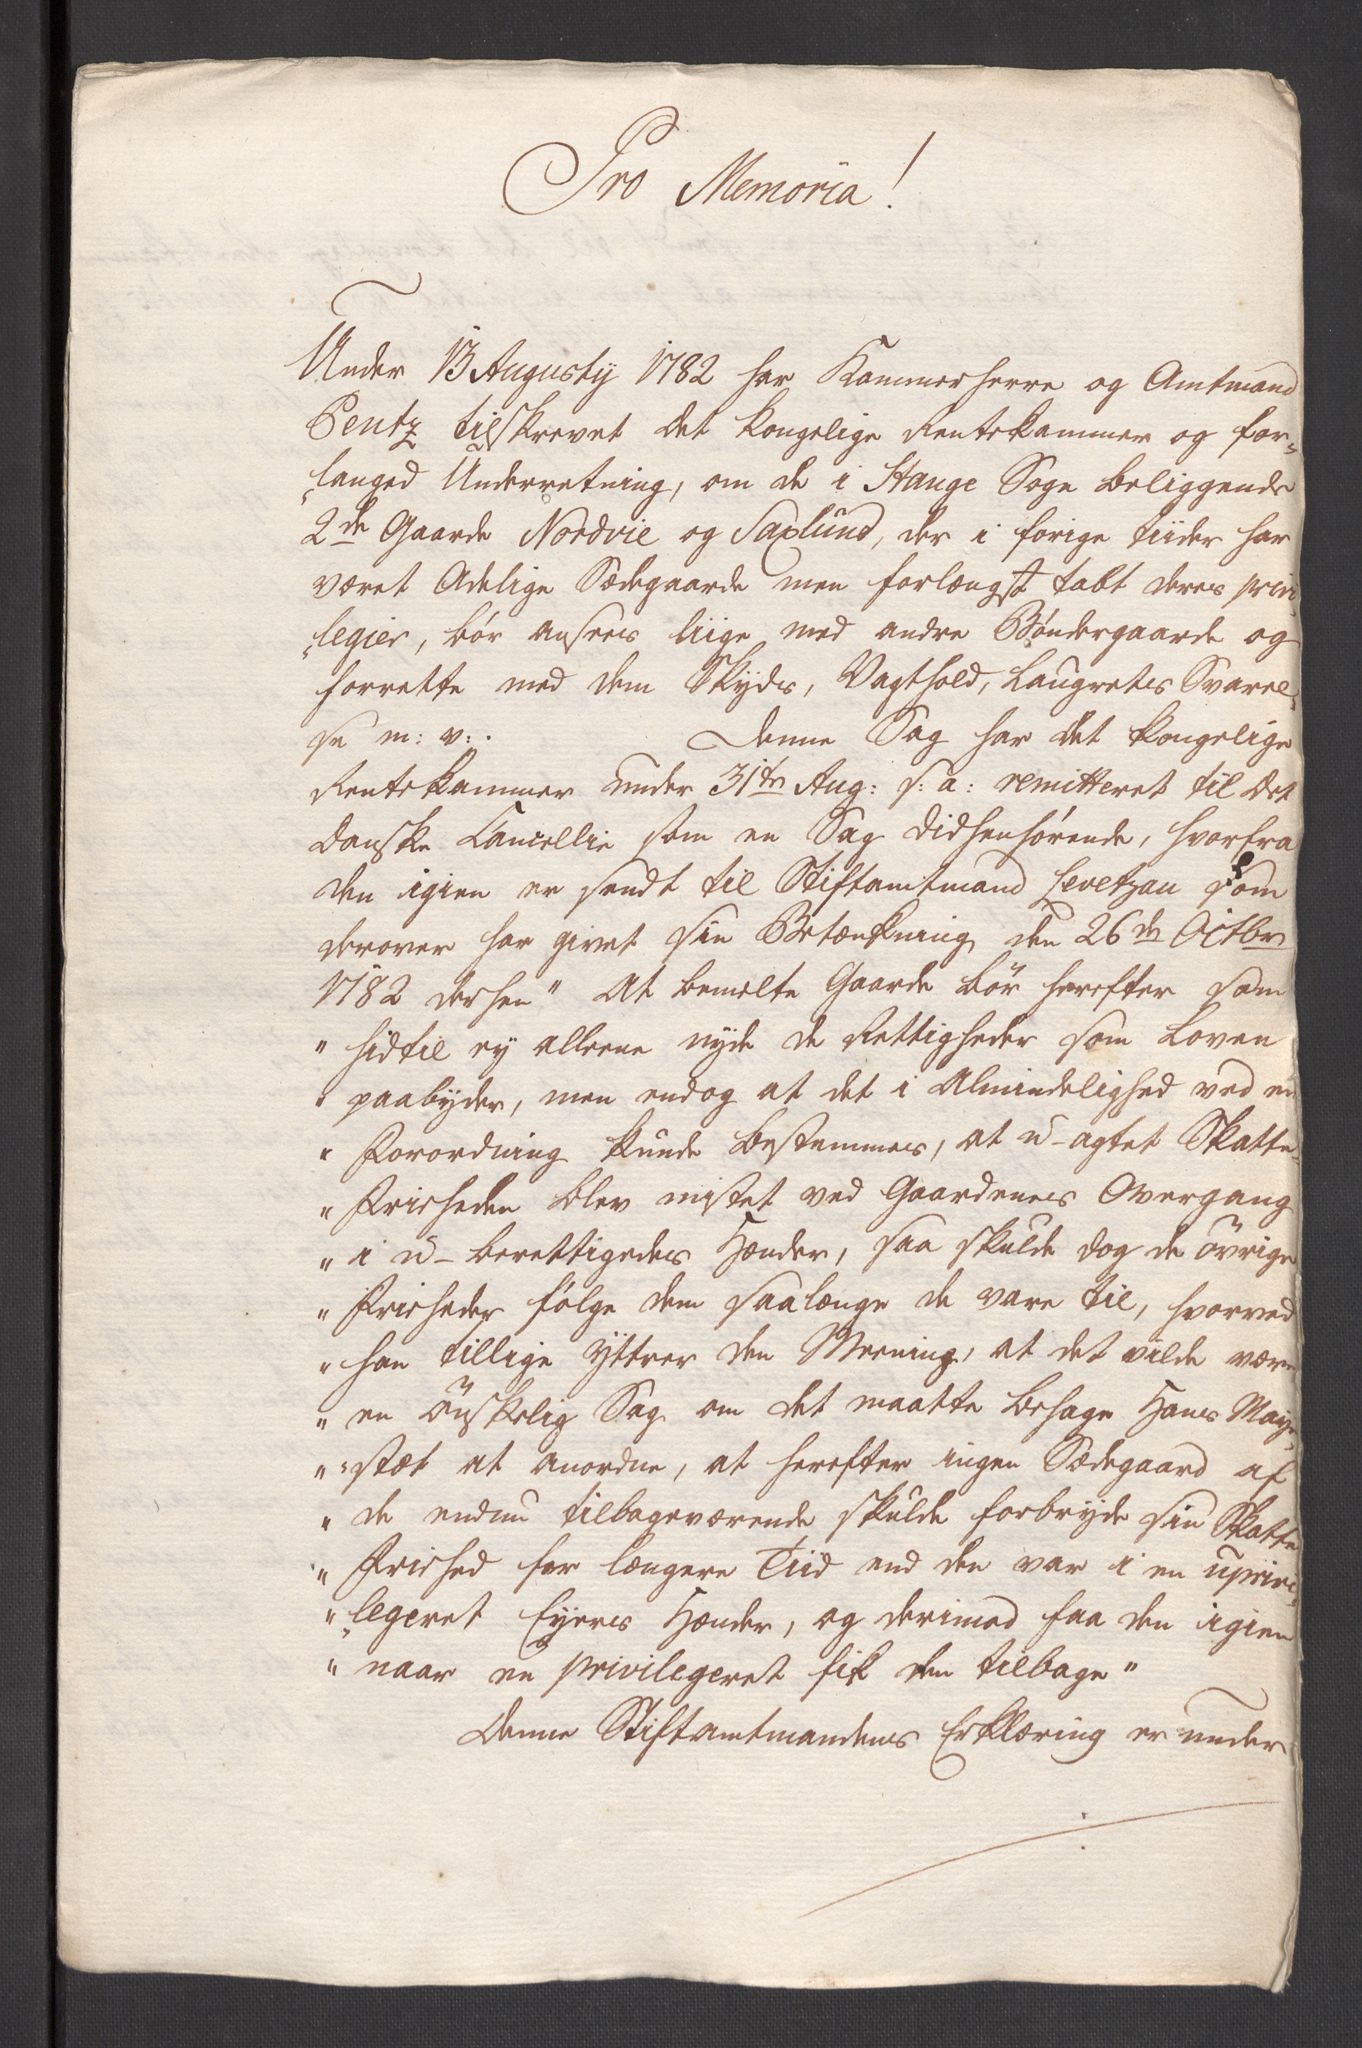 Pro Memoria!
Under 13 Augustij 1782 har Kammerherre og Amtmand
Pentz tilskrevet det kongelige Rentekammer og for-
langed Underretning, om de i Stange Sogn beliggende
2de Gaarde Nordvie og Saxlund, der i forige tiider har
været Adelige Sædegaarde men forlængst tabt deres privi
legier, bør ansees liige med andre Bøndergaarde og
forrette med dem Skyds, Vagthold, Laugrettes Svarel-
se m: v:. Denne Sag har det kongelige
Rentekammer under 31te Aug: s: a: remitteret til det
danske Cancellie som en Sag didhenhørende, hvorfra
den igien er sendt til Stiftamtmand Levetzau som
derover har givet sin Betænkning den 26de Octbr
1782 derhen " At bemelte Gaarde bør herefter som
" hidtil ey alleene nyde de Rettigheder som Loven
" paabyder, men endog at det i Almindelighed ved en
" Forordning kunde bestemmes, at u-agtet Skatte-
" Friheden blev mistet ved Gaardenes Overgang
" i u-berettigedes Hænder, saa skulde dog de øvrige
" Friheder følge dem saalænge de vare til, hvorved
" han tillige yttrer den Meening, at det vilde være
" en Ønskelig Sag om det maatte behage Hans Maye
" stæt at anordne, at herefter ingen Sædegaard af
" de endnu tilbageværende skulde forbryde sin Skatte
" Frihed for længere Tiid end den var i en uprivi-
" legeret Eyeres Hænder, og derimod faa den igien
" naar en privilegeret fik den tilbage "
Denne Stiftamtmandens Erklæring er under